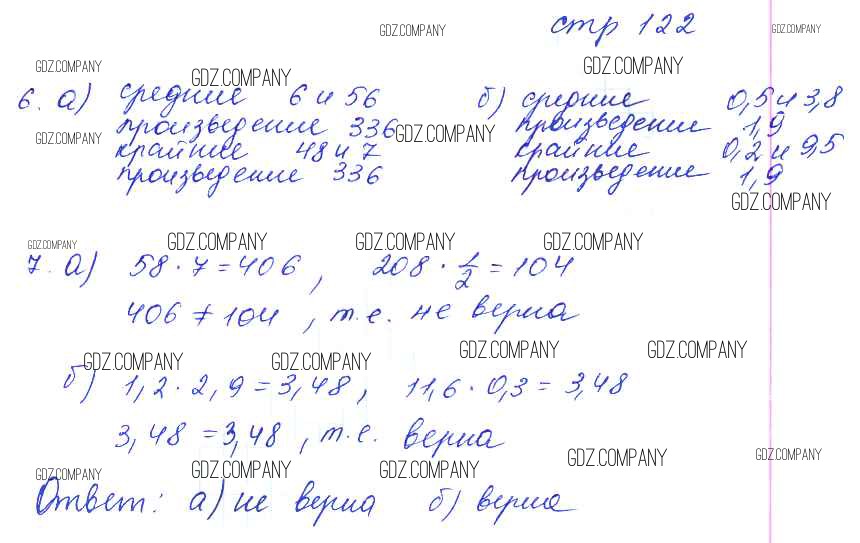 GDZ.COMPANY стр 122 GDZ.COMPANY
GDZ.COMPANY GDZ.COMPANY GDZ.COMPANY
6. а) средние 6 и 56 б) средние 0,5 и 3,8
произведение 336 произведение 1,9
GDZ.COMPANY GDZ.COMPANY
крайние 48 и 7 крайние 0,2 и 9,5
произведение 336 произведение 1,9
GDZ.COMPANY
GDZ.COMPANY GDZ.COMPANY GDZ.COMPANY GDZ.COMPANY
7. а) 58 · 7 = 406, 208 · 1/2 = 104
406 ≠ 104, т.е. не верна
GDZ.COMPANY GDZ.COMPANY GDZ.COMPANY GDZ.COMPANY
б) 1,2 · 2,9 = 3,48, 11,6 · 0,3 = 3,48
3,48 = 3,48, т.е. верна
GDZ.COMPANY GDZ.COMPANY GDZ.COMPANY GDZ.COMPANY GDZ.COMPANY
Ответ: а) не верна б) верна